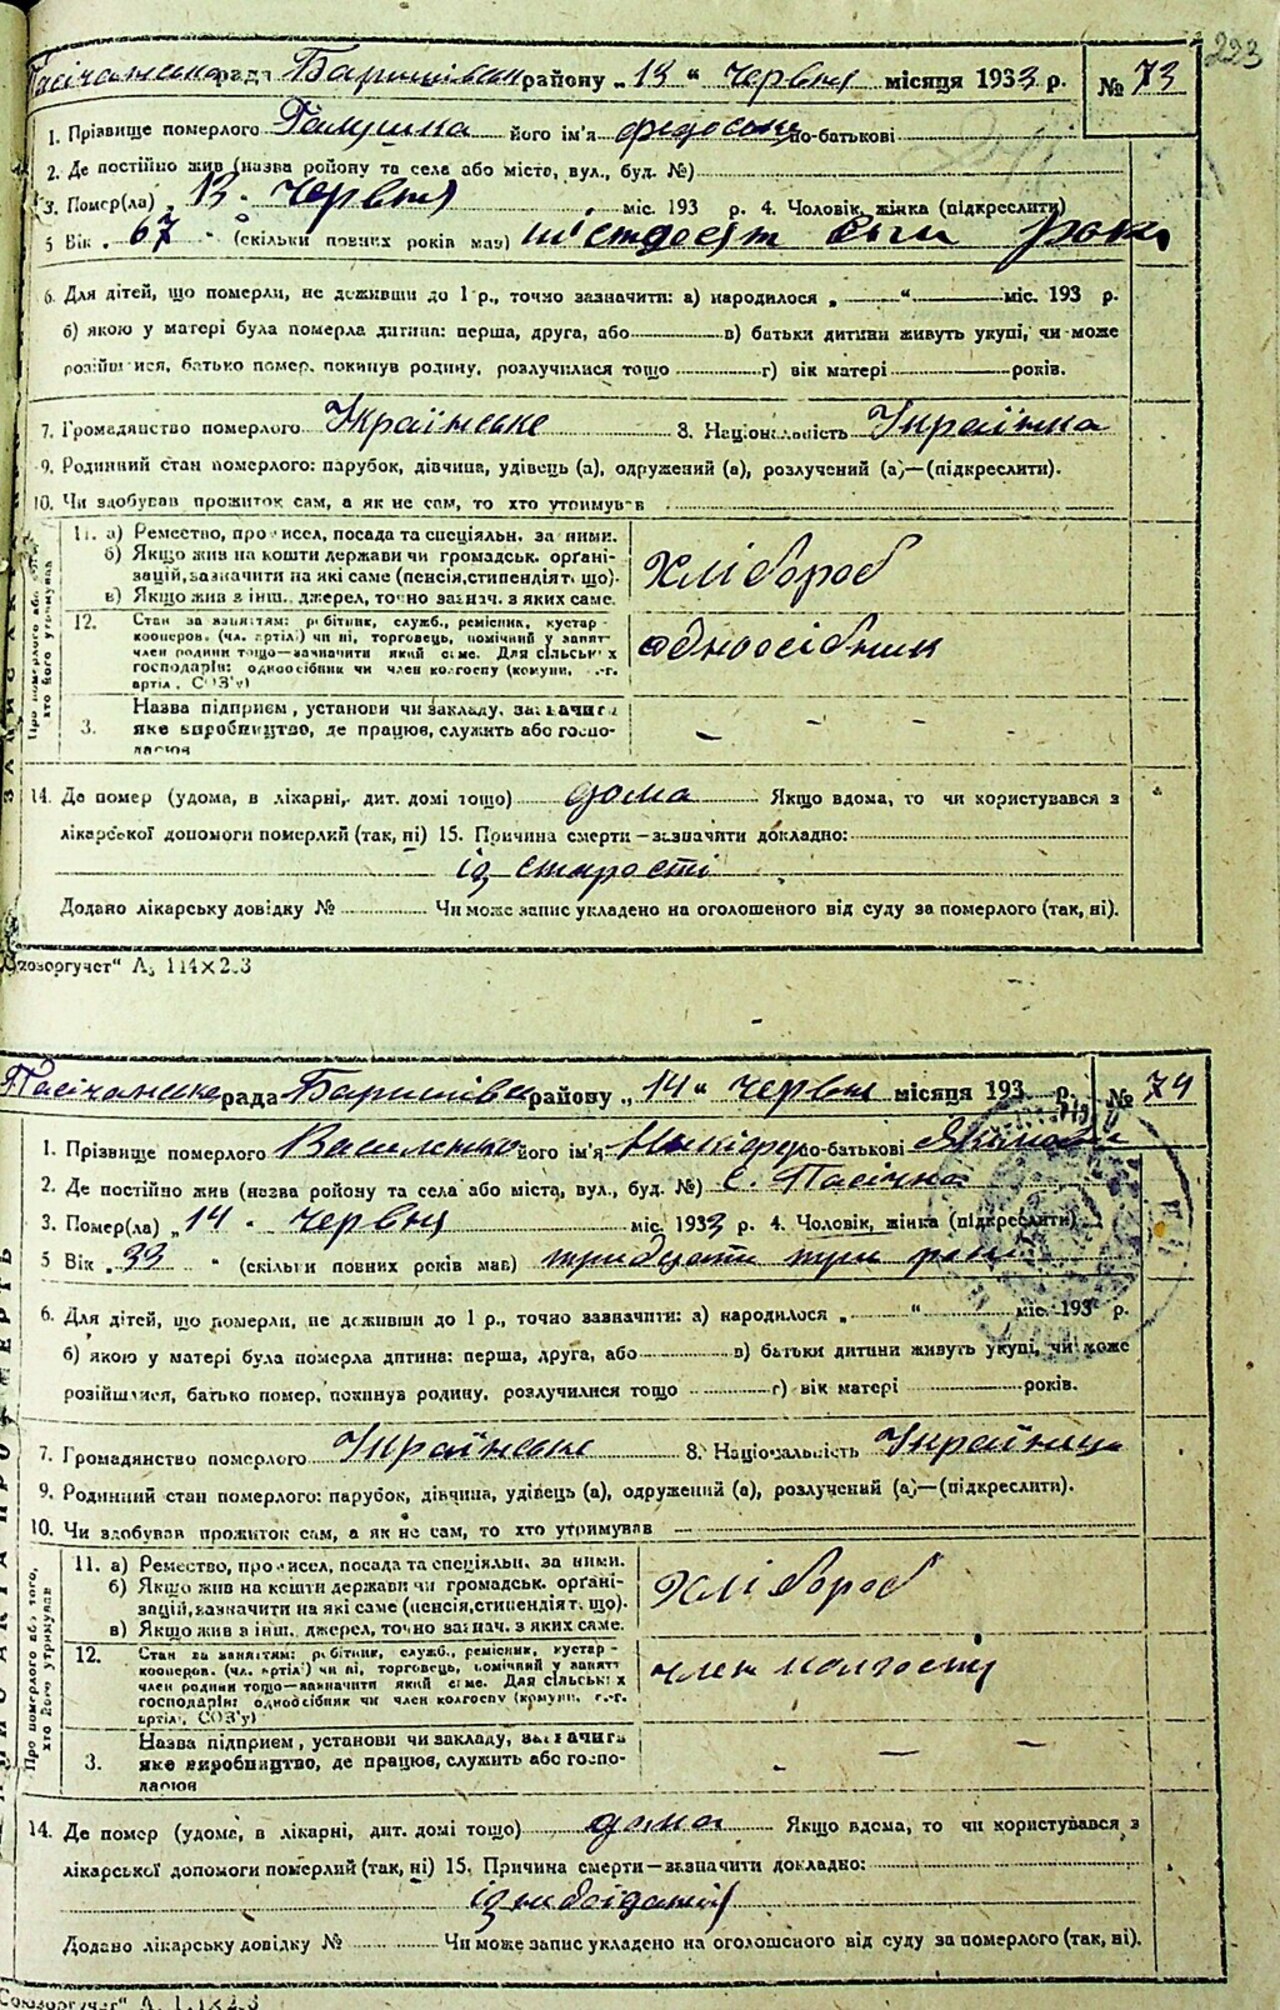 223
рада Баришівськ району „13“ червня місяця 1933 р. № 73
1. Прізвище померлого Галушка його ім'я Федоська по-батькові
2. Де постійно жив (назва району та села або міста, вул., буд. №)
3. Помер(ла) „13 червня міс. 193 р. 4. Чоловік, жінка (підкреслити)
5 Вік „67“ (скільки повних років мав) шістдесят сім років
6. Для дітей, що померли, не доживши до 1 р., точно зазначити: а) народилося „ “ міс. 193 р.
б) якою у матері була померла дитина: перша, друга, або в) батьки дитини живуть укупі, чи може
розійшлися, батько помер, покинув родину, розлучилися тощо г) вік матері років.
7. Громадянство померлого Українське 8. Національність Українка
9. Родинний стан померлого: парубок, дівчина, удівець (а), одружений (а), розлучений (а)—(підкреслити).
10. Чи здобував прожиток сам, а як не сам, то хто утримував
11. а) Ремество, промисел, посада та спеціяльн. за ними.
б) Якщо жив на кошти держави чи громадськ. орґані-
зацій, зазначити на які саме (пенсія, стипендія т. що).
в) Якщо жив з інш. джерел, точно зазнач. з яких саме.
Хлібороб
12. Стан за заняттям: робітник, служб., ремісник, кустар-
кооперов. (чл. артілі) чи ні, торговець, помічний у занятт
член родини тощо—зазначити який саме. Для сільських
господарів: одноосібник чи член колгоспу (комуни, с.-г.
артіл., СОЗ'у)
одноосібник
3. Назва підприєм, установи чи закладу, зазначити
яке виробництво, де працює, служить або госпо-
дарює
– – –
14. Де помер (удома, в лікарні, дит. домі тощо) дома Якщо вдома, то чи користувався з
лікарської допомоги померлий (так, ні) 15. Причина смерти—зазначити докладно:
із старости
Додано лікарську довідку № Чи може запис укладено на оголошеного від суду за померлого (так, ні).
„Союзоргучет“ А₅ 114×2.3
рада Баришівськ району „14“ червня місяця 193 р. № 74
1. Прізвище померлого Василенко його ім'я Никіфор по-батькові
2. Де постійно жив (назва району та села або міста, вул., буд. №) с. Пасічна
3. Помер(ла) „14 червня міс. 1933 р. 4. Чоловік, жінка (підкреслити)
5 Вік „33“ (скільки повних років мав) тридцяти три роки
6. Для дітей, що померли, не доживши до 1 р., точно зазначити: а) народилося „ “ міс. 193 р.
б) якою у матері була померла дитина: перша, друга, або в) батьки дитини живуть укупі, чи може
розійшлися, батько помер, покинув родину, розлучилися тощо г) вік матері років.
7. Громадянство померлого Українське 8. Національність Українець
9. Родинний стан померлого: парубок, дівчина, удівець (а), одружений (а), розлучений (а)—(підкреслити).
10. Чи здобував прожиток сам, а як не сам, то хто утримував
11. а) Ремество, промисел, посада та спеціяльн. за ними.
б) Якщо жив на кошти держави чи громадськ. орґані-
зацій, зазначити на які саме (пенсія, стипендія т. що).
в) Якщо жив з інш. джерел, точно зазнач. з яких саме.
Хлібороб
12. Стан за заняттям: робітник, служб., ремісник, кустар-
кооперов. (чл. артілі) чи ні, торговець, помічний у занятт
член родини тощо—зазначити який саме. Для сільських
господарів: одноосібник чи член колгоспу (комуни, с.-г.
артілі, СОЗ'у)
член колгоспу
3. Назва підприєм, установи чи закладу, зазначити
яке виробництво, де працює, служить або госпо-
дарює
– – –
14. Де помер (удома, в лікарні, дит. домі тощо) дома Якщо вдома, то чи користувався з
лікарської допомоги померлий (так, ні) 15. Причина смерти—зазначити докладно:
із недоїдання
Додано лікарську довідку № Чи може запис укладено на оголошеного від суду за померлого (так, ні).
Про померлого або того,
хто його утримував